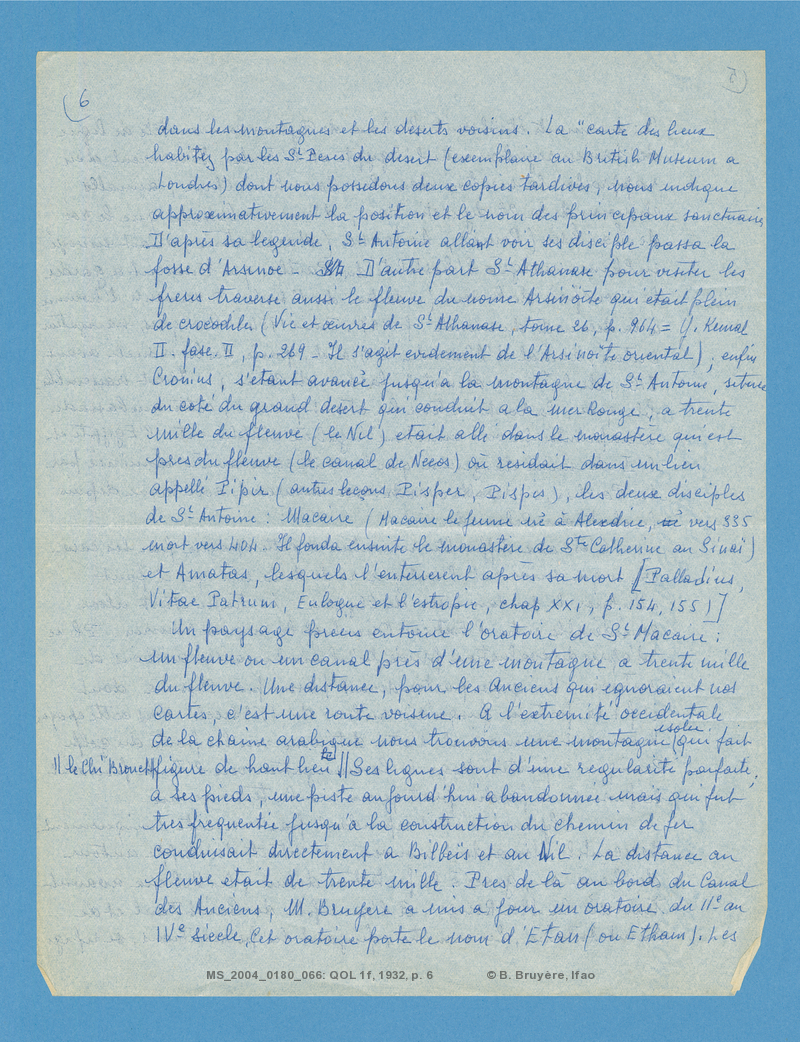 6
5
dans les montagnes et les déserts voisins. La "carte des lieux
habités par les St Peres du desert (exemplaire au British Museum a
Londres) dont nous possedons deux copies tardives, nous indique
approximativement la position et le nom des principaux sanctuaires
D'après sa legende, St Antoine allant voir ses disciple passa la
fosse d'Arsinoe - D'autre part St Athanase pour visiter les
freres traverse aussi le fleuve du nome Arsinoïte qui etait plein
de crocodiles (Vie et œuvres de St Athanase, tome 26, p. 964 = Y. Kemal
II. fasc. II, p. 269 - Il s'agit evidement de l'Arsinoïte oriental), enfin
Cronius, s'etant avancé jusqu'à la montagne de St Antoine, située
du coté du grand desert qui conduit a la mer Rouge, a trente
mille du fleuve (le Nil) etait allé dans le monastère qui est
pres du fleuve (le canal de Necos) où residait dans un lieu
appellé Pipir (autres leçons Pisper, Pispes), les deux disciples
de St Antoine : Macaire (Macaire le jeune né à Alexdrie, vers 335
mort vers 404. Il fonda ensuite le monastère de Ste Catherine au Sinaï)
et Amatas, lesquels l'enterrerent après sa mort [Palladius,
Vitae Patrum, Eulogue et l'estropié, chap XXI, p. 154, 155)]
Un paysage precis entoure l'oratoire de St Macaire :
un fleuve ou un canal près d'une montagne a trente mille
du fleuve. Une distance, pour les Anciens qui ignoraient nos
cartes, c'est une route voisine. A l'extremité occidentale
de la chaine arabique nous trouvons une montagne isolée (qui fait
|| le Chi Brouet
figure de haut lieu || Ses lignes sont d'une regularité parfaite,
a ses pieds, une piste aujourd'hui abandonnée mais qui fut
tres frequentée jusqu'à la construction du chemin de fer
conduisait directement a Bilbeïs et au Nil. La distance au
fleuve etait de trente mille. Pres de là au bord du Canal
des Anciens, M. Bruyere a mis a jour un oratoire du IIe au
IVe siecle, Cet oratoire porte le nom d'Etan (ou Etham). Les
MS_2004_0180_066: QOL 1f, 1932, p. 6 © B. Bruyère, Ifao